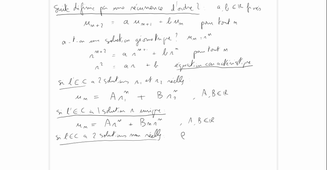 Suite définie par une récurrence d'ordre 2   a, b ∈ ℝ fixés
u_{n+2} = a u_{n+1} + b u_n   pour tout n
a-t-on une solution géométrique ?   u_n = r^n
r^{n+2} = a r^{n+1} + b r^n   pour tout n
r² = a r + b   équation caractéristique
si l'EC a 2 solutions r₁ et r₂ réelles
u_n = A r₁^n + B r₂^n , A, B ∈ ℝ
si l'EC a 1 solution r unique
u_n = A r^n + B n r^n , A, B ∈ ℝ
si l'EC a 2 solutions non réelles